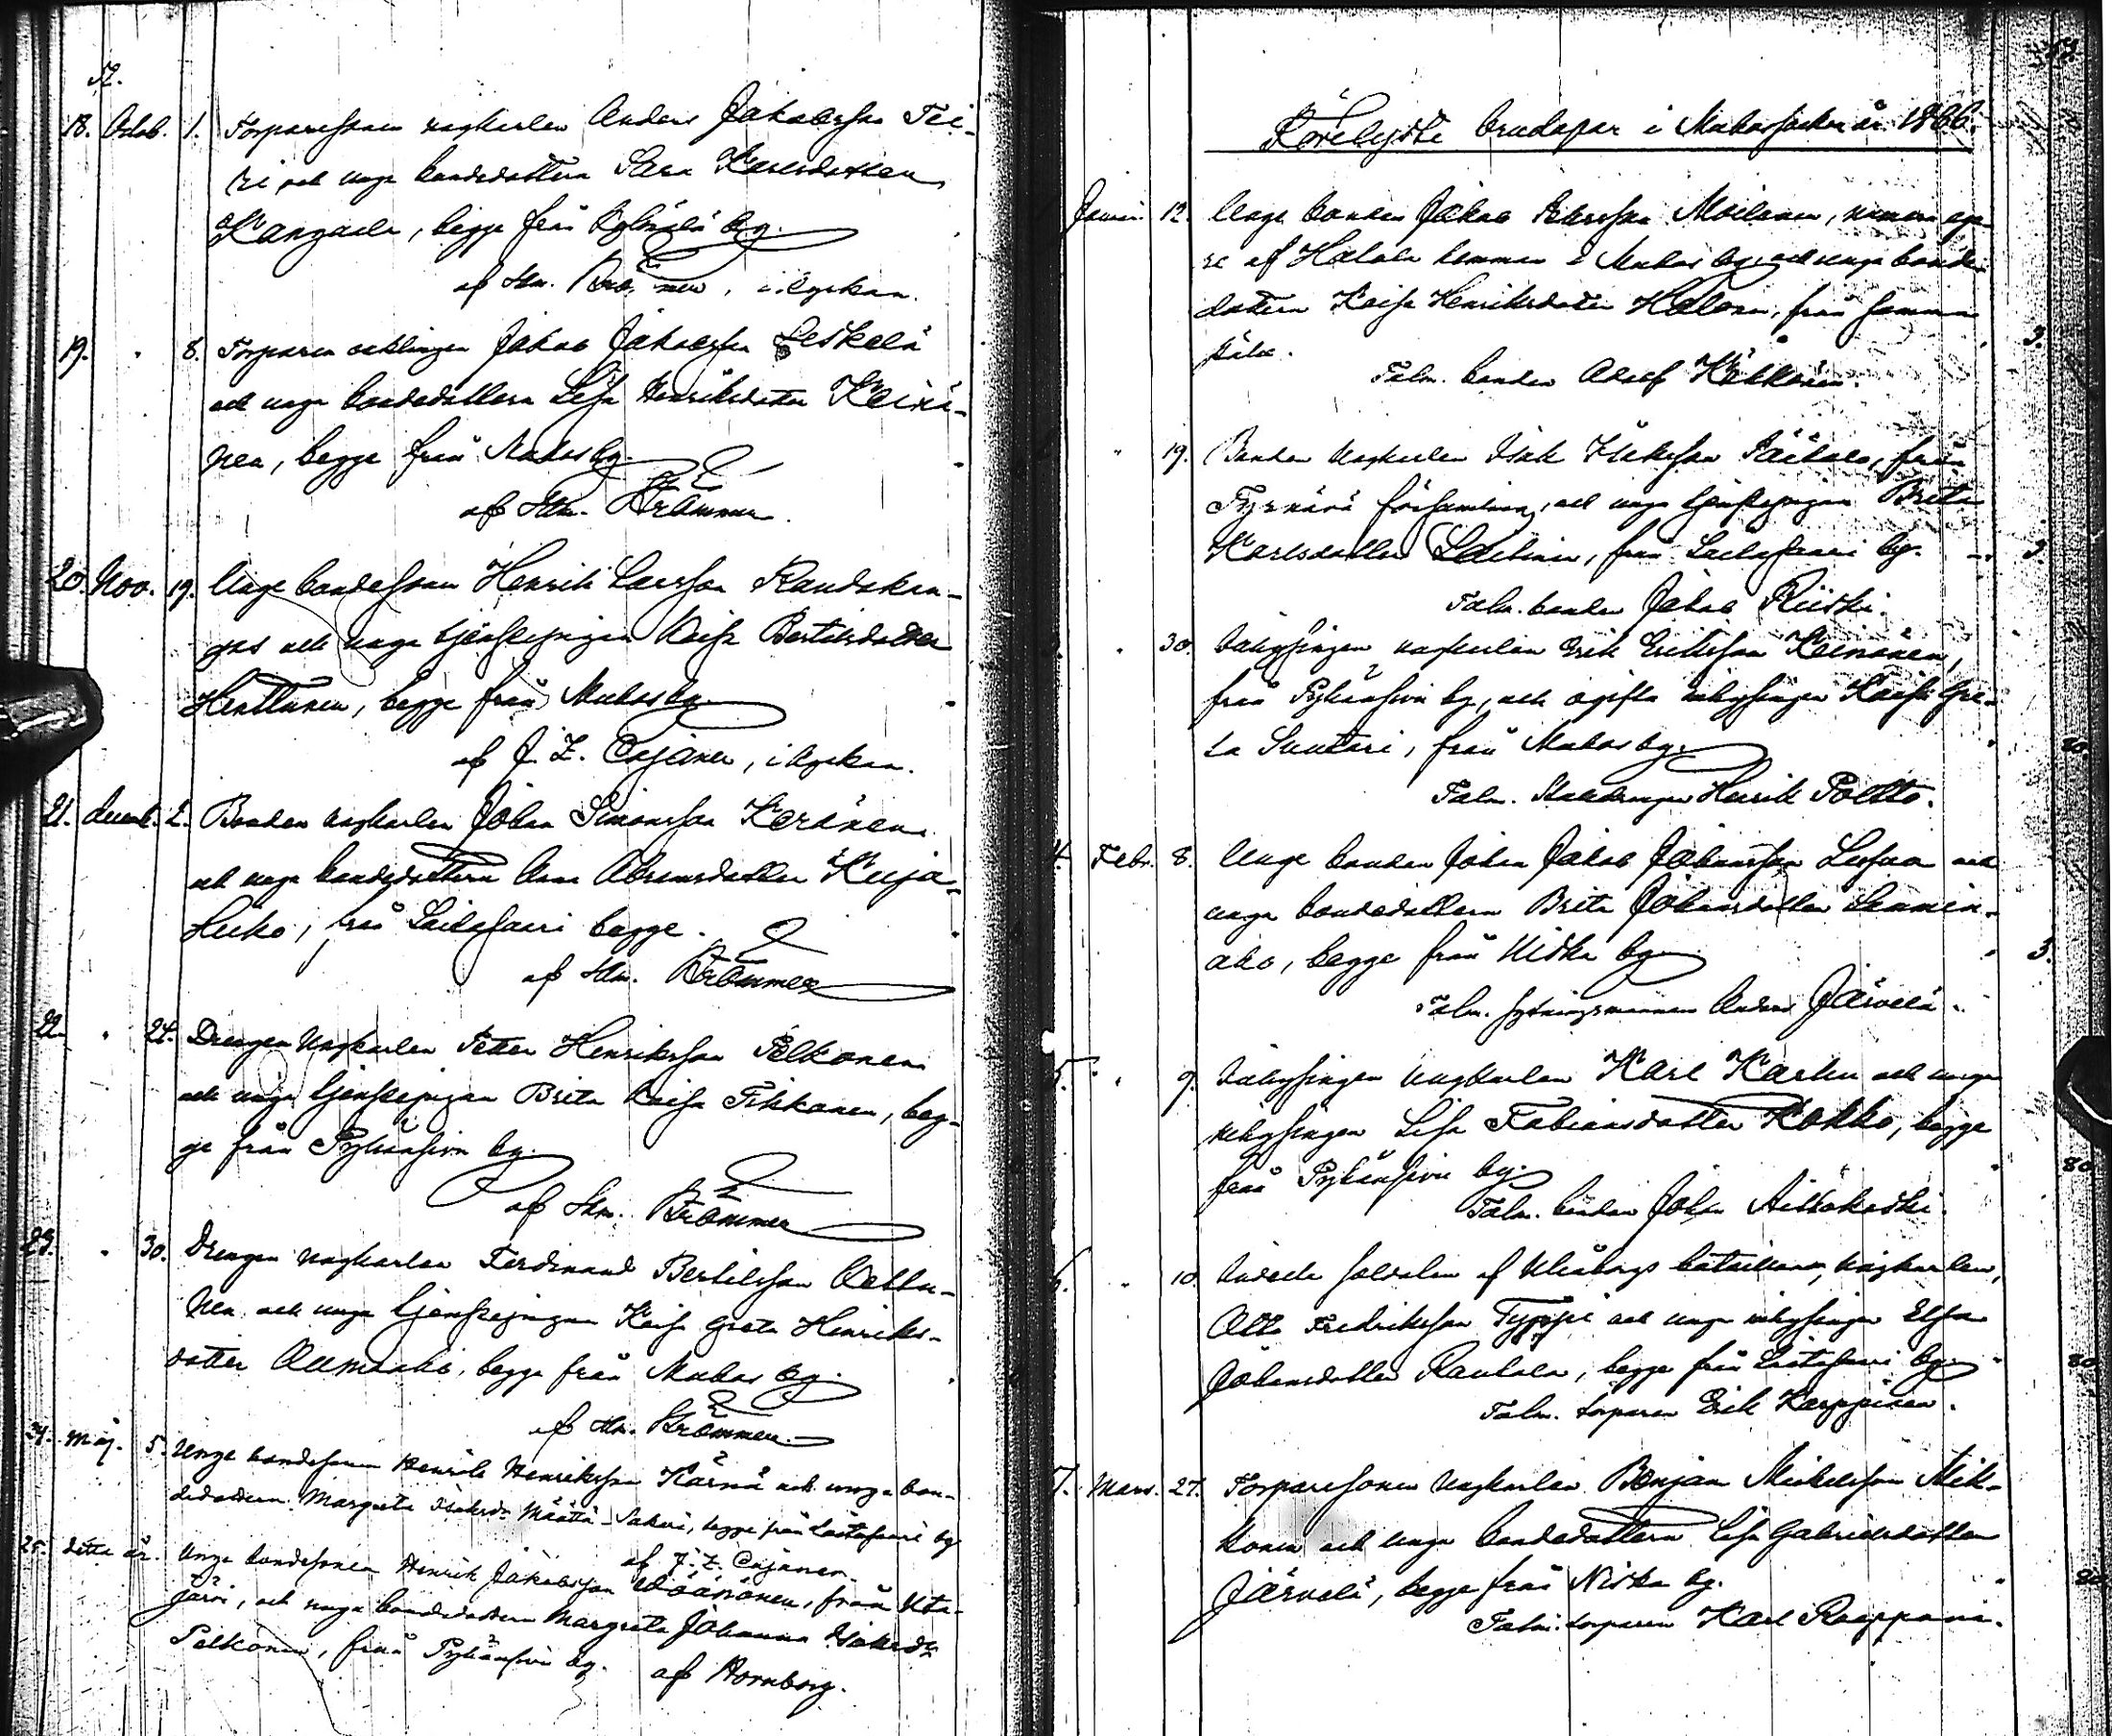 52.
18. Octob. 1. Torparesonen ungkarlen Anders Jakobsson Tei-
ri och unga bondedottern Sara Karlsdotter
Kangas, begge från by.
af Hr. Krömmer, i kyrkan.
19. " 8. Torparen enklingen Jakob Jakobsson Leskelä
och unga bondedottern Lisa Henriksdotter Keinä-
nen, begge från Muhos by.
af Hr. Krömmer.
20. Nov. 19. Unge bondesonen Henrik Larsson Kandakan-
gas och unga tjenstepigan Kaisa Bertilsdotter
Henttunen, begge från Muhos by.
af J. Z. Cajaner, i kyrkan.
21. Decemb. 2. Bonden ungkarlen Johan Simonsson Keränen
och unga bondedottern Anna Abramsdotter Kuja-
, från Laitasaari begge.
af Hr. Krömmer
22. " 24. Drengen ungkarlen Petter Henriksson Pelkonen
och unga tjenstepigan Brita Kaisa Tikkanen, beg-
ge från Pyhänsivu by.
af Hr. Krömmer
23. " 30. Drengen ungkarlen Ferdinand Bertilsson
nen och unga tjenstepigan Kaisa Greta Henriks-
dotter, begge från Muhos by.
af Hr. Krömmer.
24. Maj. 5. Unge bondesonen Henrik Henriksson Kärnä och unga bon-
dedottern Margreta Isaksdr Määttä-Sakari, begge från Laitasaari by
af J. Z. Cajaner.
25. detta år. Unge bondesonen Henrik Jakobsson Wäänänen, från Uta-
järvi, och unga bondedottern Margreta Johanna Isaksdr
Pelkonen, från Pyhänsivu by. af Hornborg.
53.
Förelyste brudepar i Muhos socken år 1866.
Januar. 12. Unge bonden Jakob Petersson Moilanen,
re af Halola hemman i Muhos by och unga bonde-
dottern Kaisa Henriksdotter Halonen, från samma
ställe. 3.
Talm. bonden Adolf Kekkonen.
" 19. Bonden ungkarlen Isak Isaksson, från
Tyrnävä församling, och unga tjenstepigan Brita
Karlsdotter Laitinen, från Laitasaari by. 3
Talm. bonden Jakob Riiski.
" 30. Inhysingen ungkarlen Erik Eriksson Keinänen,
från Pyhänsivu by, och ogifta inhysingen Kaisa Gre-
ta Suutari, från Muhos by. 80.
Talm. Henrik Poltto.
4. Febr. 8. Unge bonden Johan Jakob Johansson och
unga bondedottern Brita Johansdotter Lamin-
aho, begge från Niska by 3.
Talm. Anders Järvelä.
5. " 9. Inhysingen ungkarlen Karl Karhu och unga
inhysingen Lisa Fabiansdotter Kokko, begge
från Pyhänsivu by. 80
Talm. bonden Johan Aittokoski.
6. " 10. soldaten af Uleåborgs bataillon, ungkarlen,
Otto Fredriksson Tyyppi och unga inhysingen Elsa
Johansdotter Rautala, begge från Laitasaari by 80
Talm. torparen Erik Karppinen.
7. Mars. 27. Torparesonen ungkarlen Benjam Mickelsson Mik-
konen och unga bondedottern Lisa Gabrielsdotter
Järvelä, begge från Niska by. 80
Talm. torparen Karl Raappana.